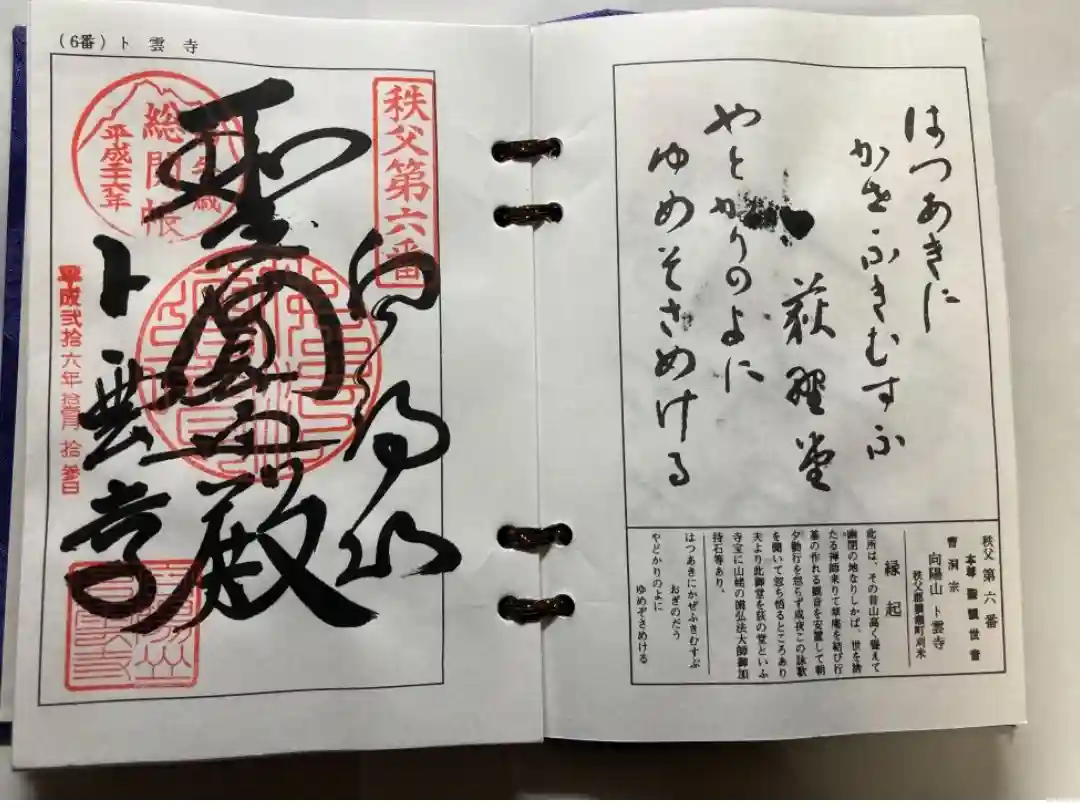 (6番)ト雲寺
秩父第六番
向陽山
聖
殿
ト雲寺
総開帳
平成二十六年
平成弐拾六年拾壱月拾参日
はつあきに
かせふきむすふ
荻野堂
やとかりのよに
ゆめそさめける
秩父第六番
本尊 聖観世音
曹洞宗
向陽山 ト雲寺
縁起
此所は、その昔山高く聳えて
幽閉の地なりしかば、世を諦
たる禅師来りて草庵を結び行
基の作れる観音を安置して朝
夕勤行を怠らず或夜この詠歌
を聞いて忽ち悟るところあり
夫より此御堂を荻の堂といふ
寺宝に山姥の歯弘法大師御加
持石等あり。
はつあきにかぜふきむすぶ
おぎのだう
やどかりのよに
ゆめぞさめける